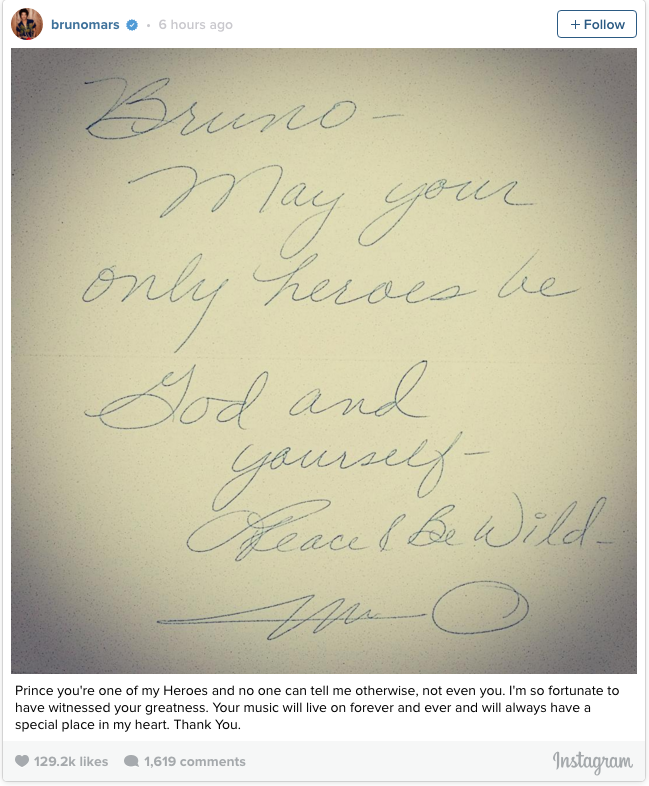 brunomars • 6 hours ago
+ Follow
Bruno -
May your
only heroes be
God and
yourself -
Peace & Be Wild -
Prince you're one of my Heroes and no one can tell me otherwise, not even you. I'm so fortunate to
have witnessed your greatness. Your music will live on forever and ever and will always have a
special place in my heart. Thank You.
129.2k likes 1,619 comments
Instagram